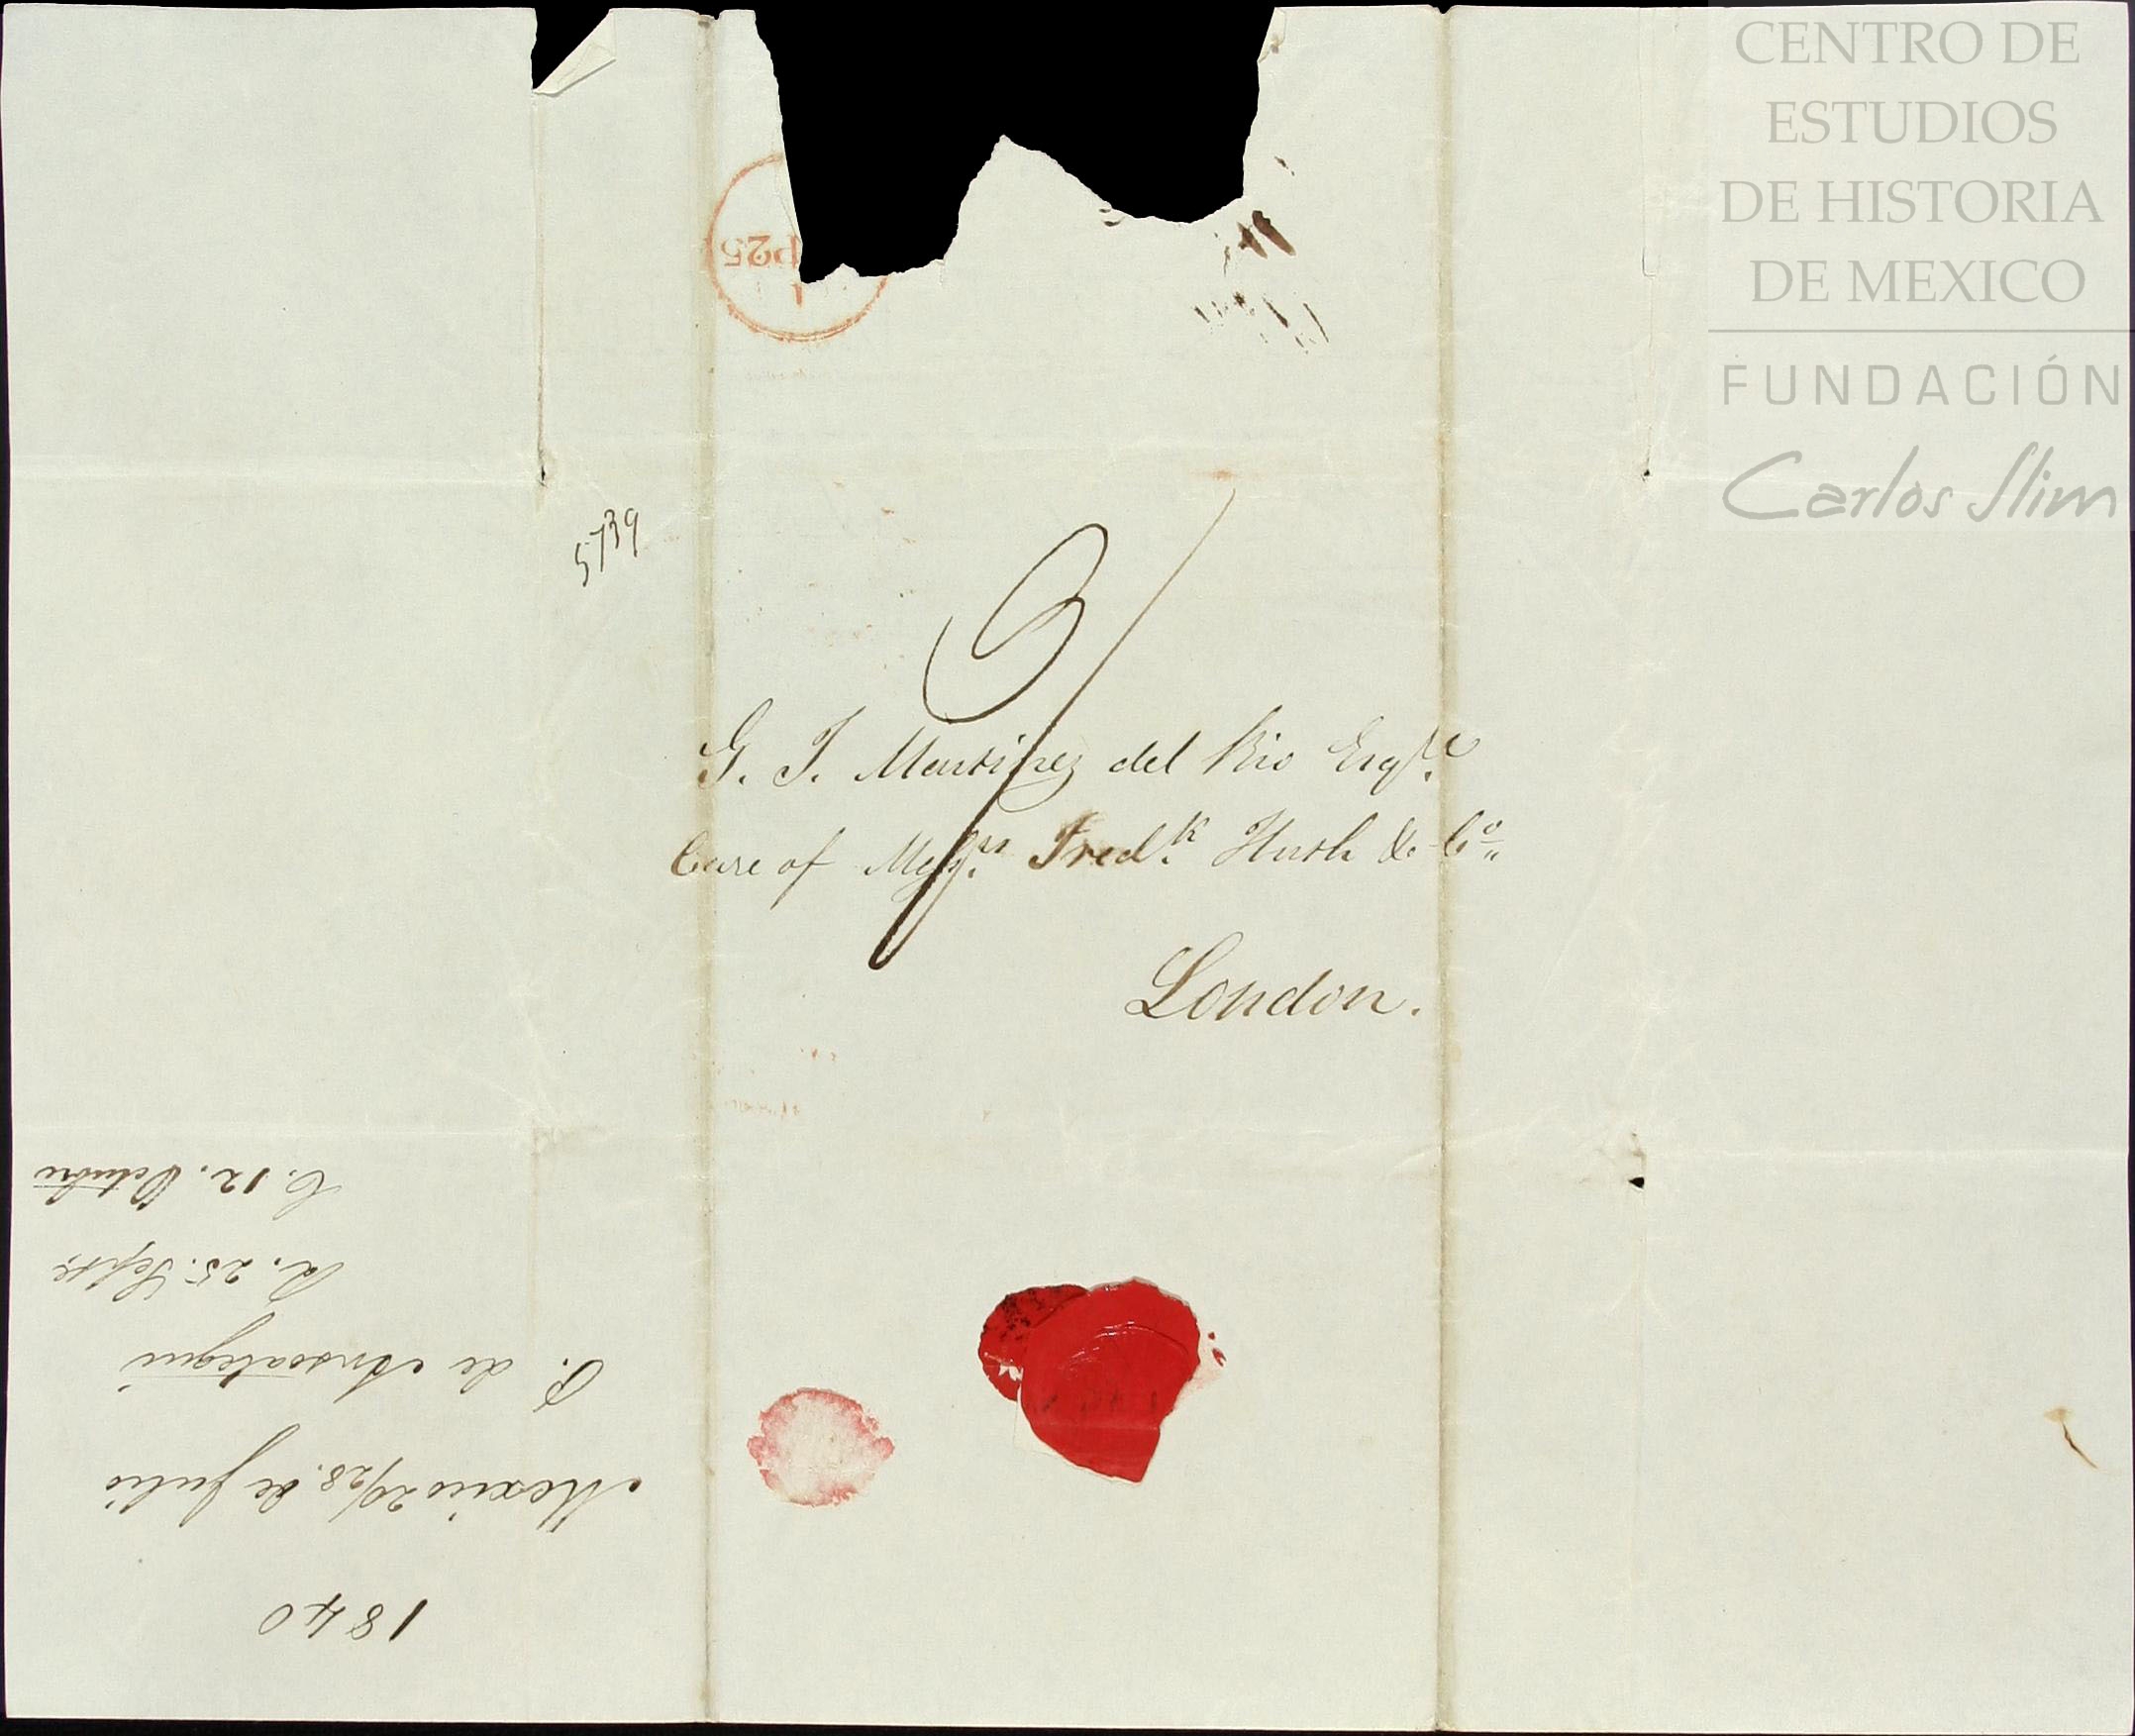 CENTRO DE
ESTUDIOS
DE HISTORIA
DE MEXICO
FUNDACIÓN
Carlos Slim
P25
5739
G. J. Martinez del Rio Esqre.
Care of Messrs. Fredk. Huth & Co.
London.
1840
Mexico 20/28. de Julio
P. de Ansoategui
R. 25. Septe
C. 12. Octubre